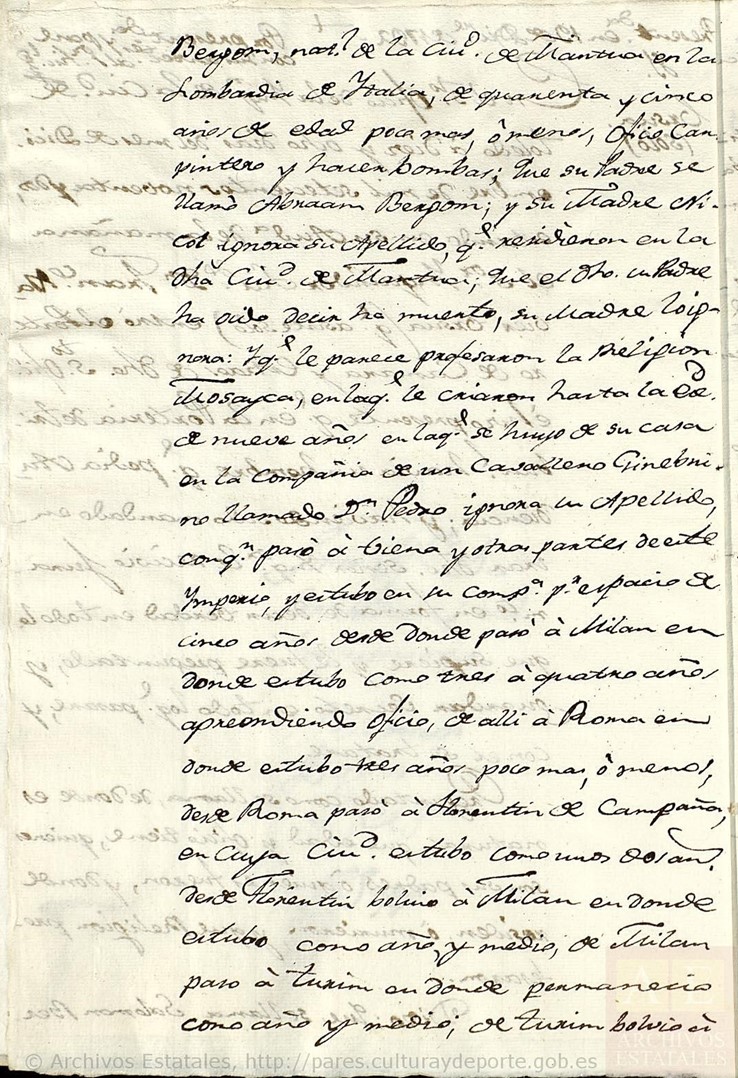 Bergom, nat.l de la Ciu.d de Mantua en la
Lombardia de Ytalia, de quarenta y cinco
años de edad poco mas, ò menos, Oficio Car-
pintero y hacer bombas; que su Padre se
llamò Abraam Bergom; y su Madre Ni-
col ignora su Apellido, q.e residieron en la
dha Ciu.d de Mantua, que el dho. su Padre
ha oido decir ha muerto, su Madre lo ig-
nora: Y q.e le parece profesaron la Religion
Mosayca, en la q.e le criaron hasta la ed.d
de nueve años en la q.e se huyo de su casa
en la Compañia de un Cavallero Ginebri-
no llamado D.n Pedro ignora su Apellido,
con q.n pasò à Viena y otras partes de este
Ymperio, y estubo en su comp.a p.r espacio de
cinco años desde donde pasò à Milan en
donde estubo como tres à quatro años
apreendiendo Oficio, de alli à Roma en
donde estubo tres años poco mas, ò menos,
desde Roma pasò à Florentin de Campaña,
en cuya Ciu.d estubo como unos dos añ.s
desde Florentin bolvio à Milan en donde
estubo como año, y medio, de Milan
paso à turin en donde permanecio
como año y medio; de turin bolvio à
© Archivos Estatales, http://pares.culturaydeporte.gob.es
ARCHIVOS
ESTATALES